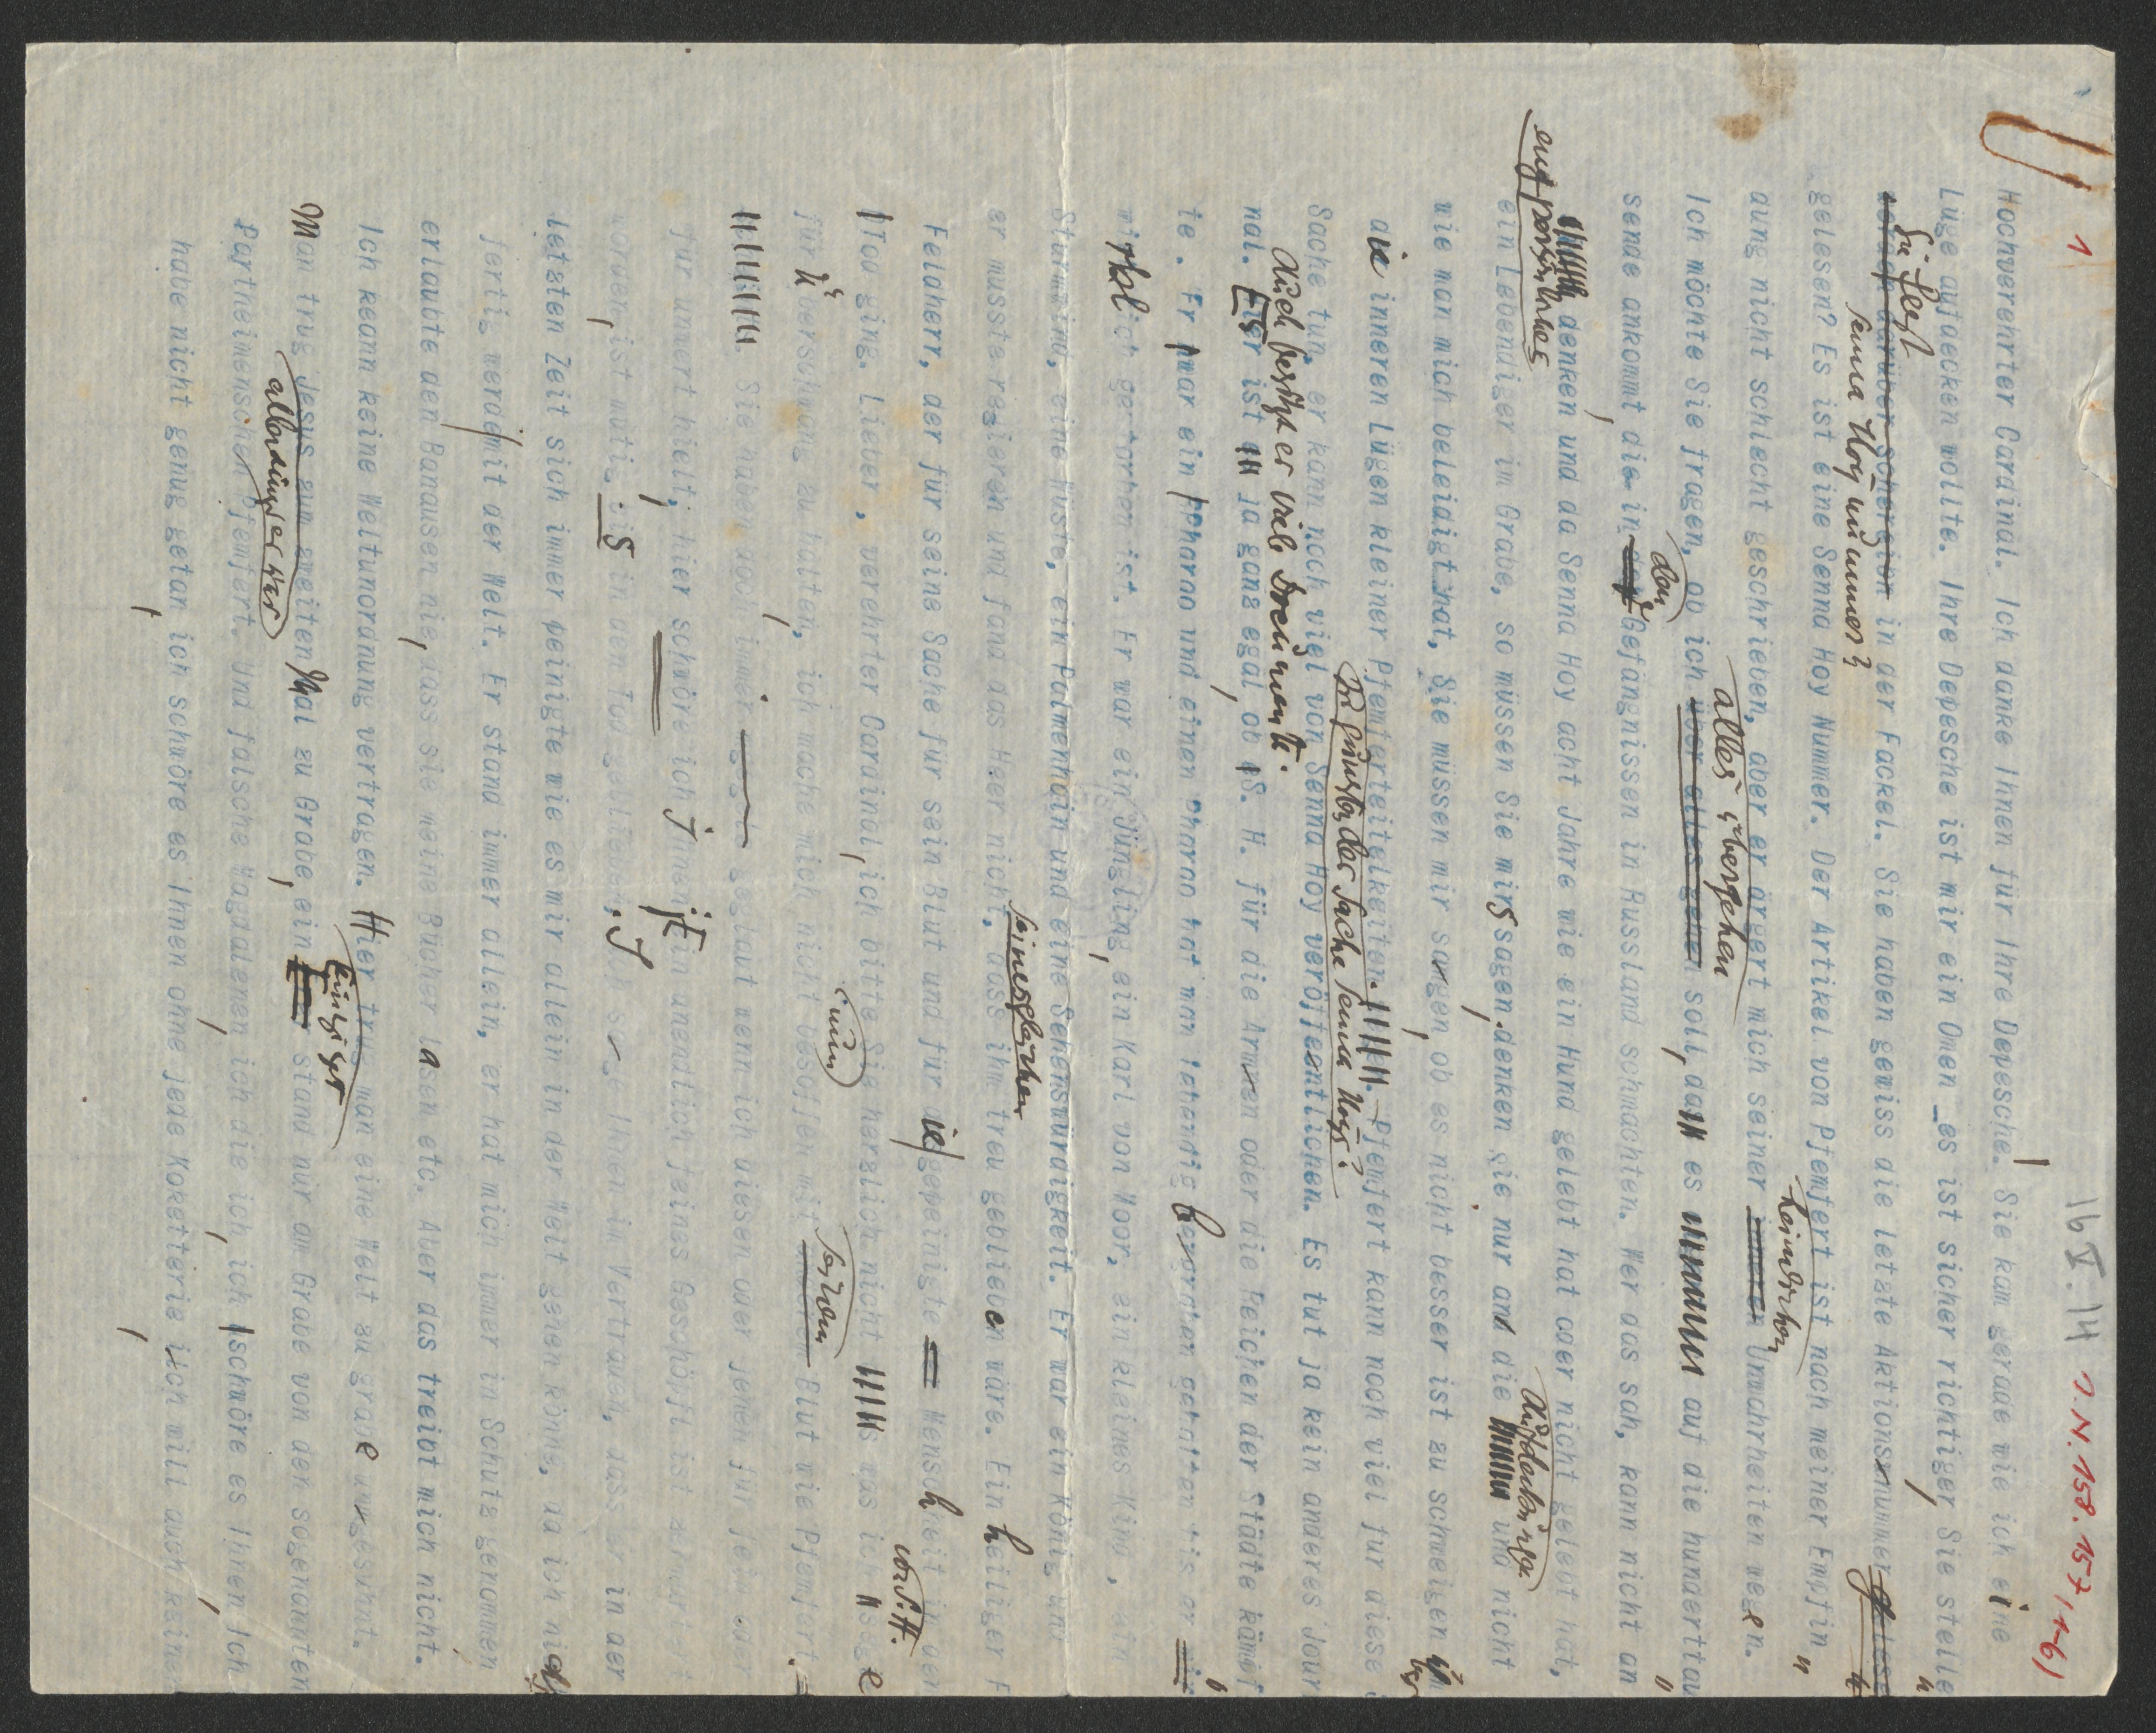 1
16 V. 14
I.N. 158.157 (1-6)
Hochverehrter Cardinal. Ich danke Ihnen für Ihre Depesche. Sie kam gerade wie ich eine
Lüge aufdecken wollte. Ihre Depesche ist mir ein Omen _es ist sicher richtiger, Sie stelle
in der Fackel. Sie haben gewiss die letzte Aktionsnummer gelese
Senna Hoy nummer?
gelesen? Es ist eine Senna Hoy Nummer. Der Artikel von Pfemfert ist nach meiner Empfin
dung nicht schlecht geschrieben, aber er ärgert mich seiner Unwahrheiten wegen.
alles übergehen
Ich möchte Sie fragen, ob ich über alles gehen soll, da es auf die hunderttau
den
sende ankommt die in Gefängnissen in Russland schmachten. Wer das sah, kann nicht an
denken und da Senna Hoy acht Jahre wie ein Hund gelebt hat oder nicht gelebt hat,
ein Lebendiger im Grabe, so müssen Sie mirs sagen. denken Sie nur an die und nicht
wie man mich beleidigt hat, Sie müssen mir sagen, ob es nicht besser ist zu schweigen
die inneren Lügen kleiner Pfemferteitelkeiten. Pfemfert kann noch viel für diese
zu Gunsten der Sache Senna Hoys.
Sache tun, er kann noch viel von Senna Hoy veröffentlichen. Es tut ja kein anderes Jour
auch besitzt er viele Dreimente.
nal. Es ist ja ganz egal, ob S. H. für die Armen oder die Reichen der Städte kämpf
te. Er war ein Pharao und einen Pharao hat man lebendig begraben gehalten bis er
wirklich gestorben ist. Er war ein Jüngling, ein Karl von Moor, ein kleines Kind, ein
Sturmwind, eine Wüste, ein Palmenhain und eine Sehenswürdigkeit. Er war ein König und
seinesgleichen
er musste regieren und fand das Heer nicht, dass ihm treu geblieben wäre. Ein heiliger F
Feldherr, der für seine Sache für sein Blut und für die gepeinigte Menschheit in den
Tod ging. Lieber, verehrter Cardinal, ich bitte Sie herzlich nicht was ich sage
für überschwang zu halten, ich mache mich nicht besoffen mit Blut wie Pfemfert.
Sie haben noch immer geglaubt wenn ich diesen oder jenen für fein oder
für unwert hielt, hier schwöre ich Ihnen ein unendlich feines Geschöpf ist ermordet
worden, ist mutig bis in den Tod geblieben. Ich sage Ihnen im Vertrauen, dass er in der
letzten Zeit sich immer peinigte wie es mir allein in der Welt gehen könne, da ich nicht
fertig werde mit der Welt. Er stand immer allein, er hat mich immer in Schutz genommen
erlaubte den Banausen nie, dass sie meine Bücher lasen etc. Aber das treibt mich nicht.
Ich kann keine Weltunordnung vertragen. Hier trug man eine Welt zu grabe
einziger
Man trug Jesus zum zweiten Mal zu Grabe, ein stand nur am Grabe von den sogenannten
allerdings er war
Partheimenschen Pfemfert. Und falsche Magdalenen, ich die ich, ich schwöre es Ihnen Ich
habe nicht genug getan, ich schwöre es Ihnen ohne jede Koketterie, ich will auch keine